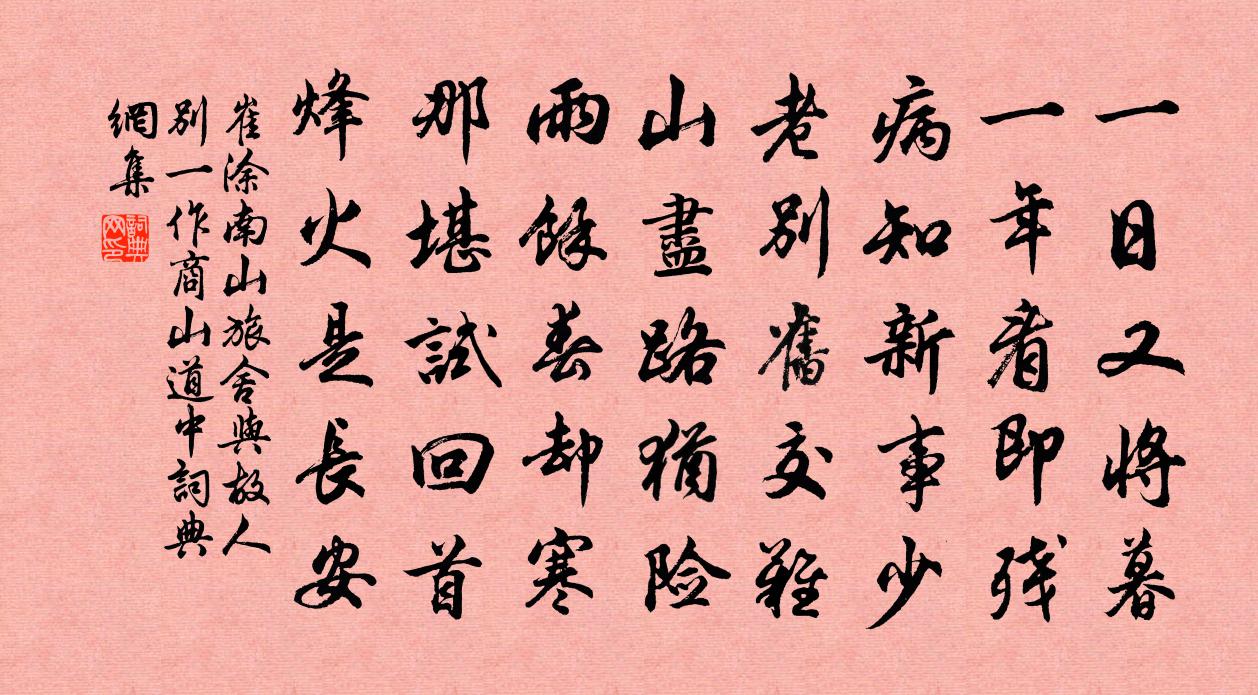 一日又將暮
一年看即殘
病知新事少
老別舊交難
山盡路猶險
雨餘春却寒
那堪試回首
烽火是長安
崔涂南山旅舍與故人
別一作商山道中詞典
網集
詞典網印